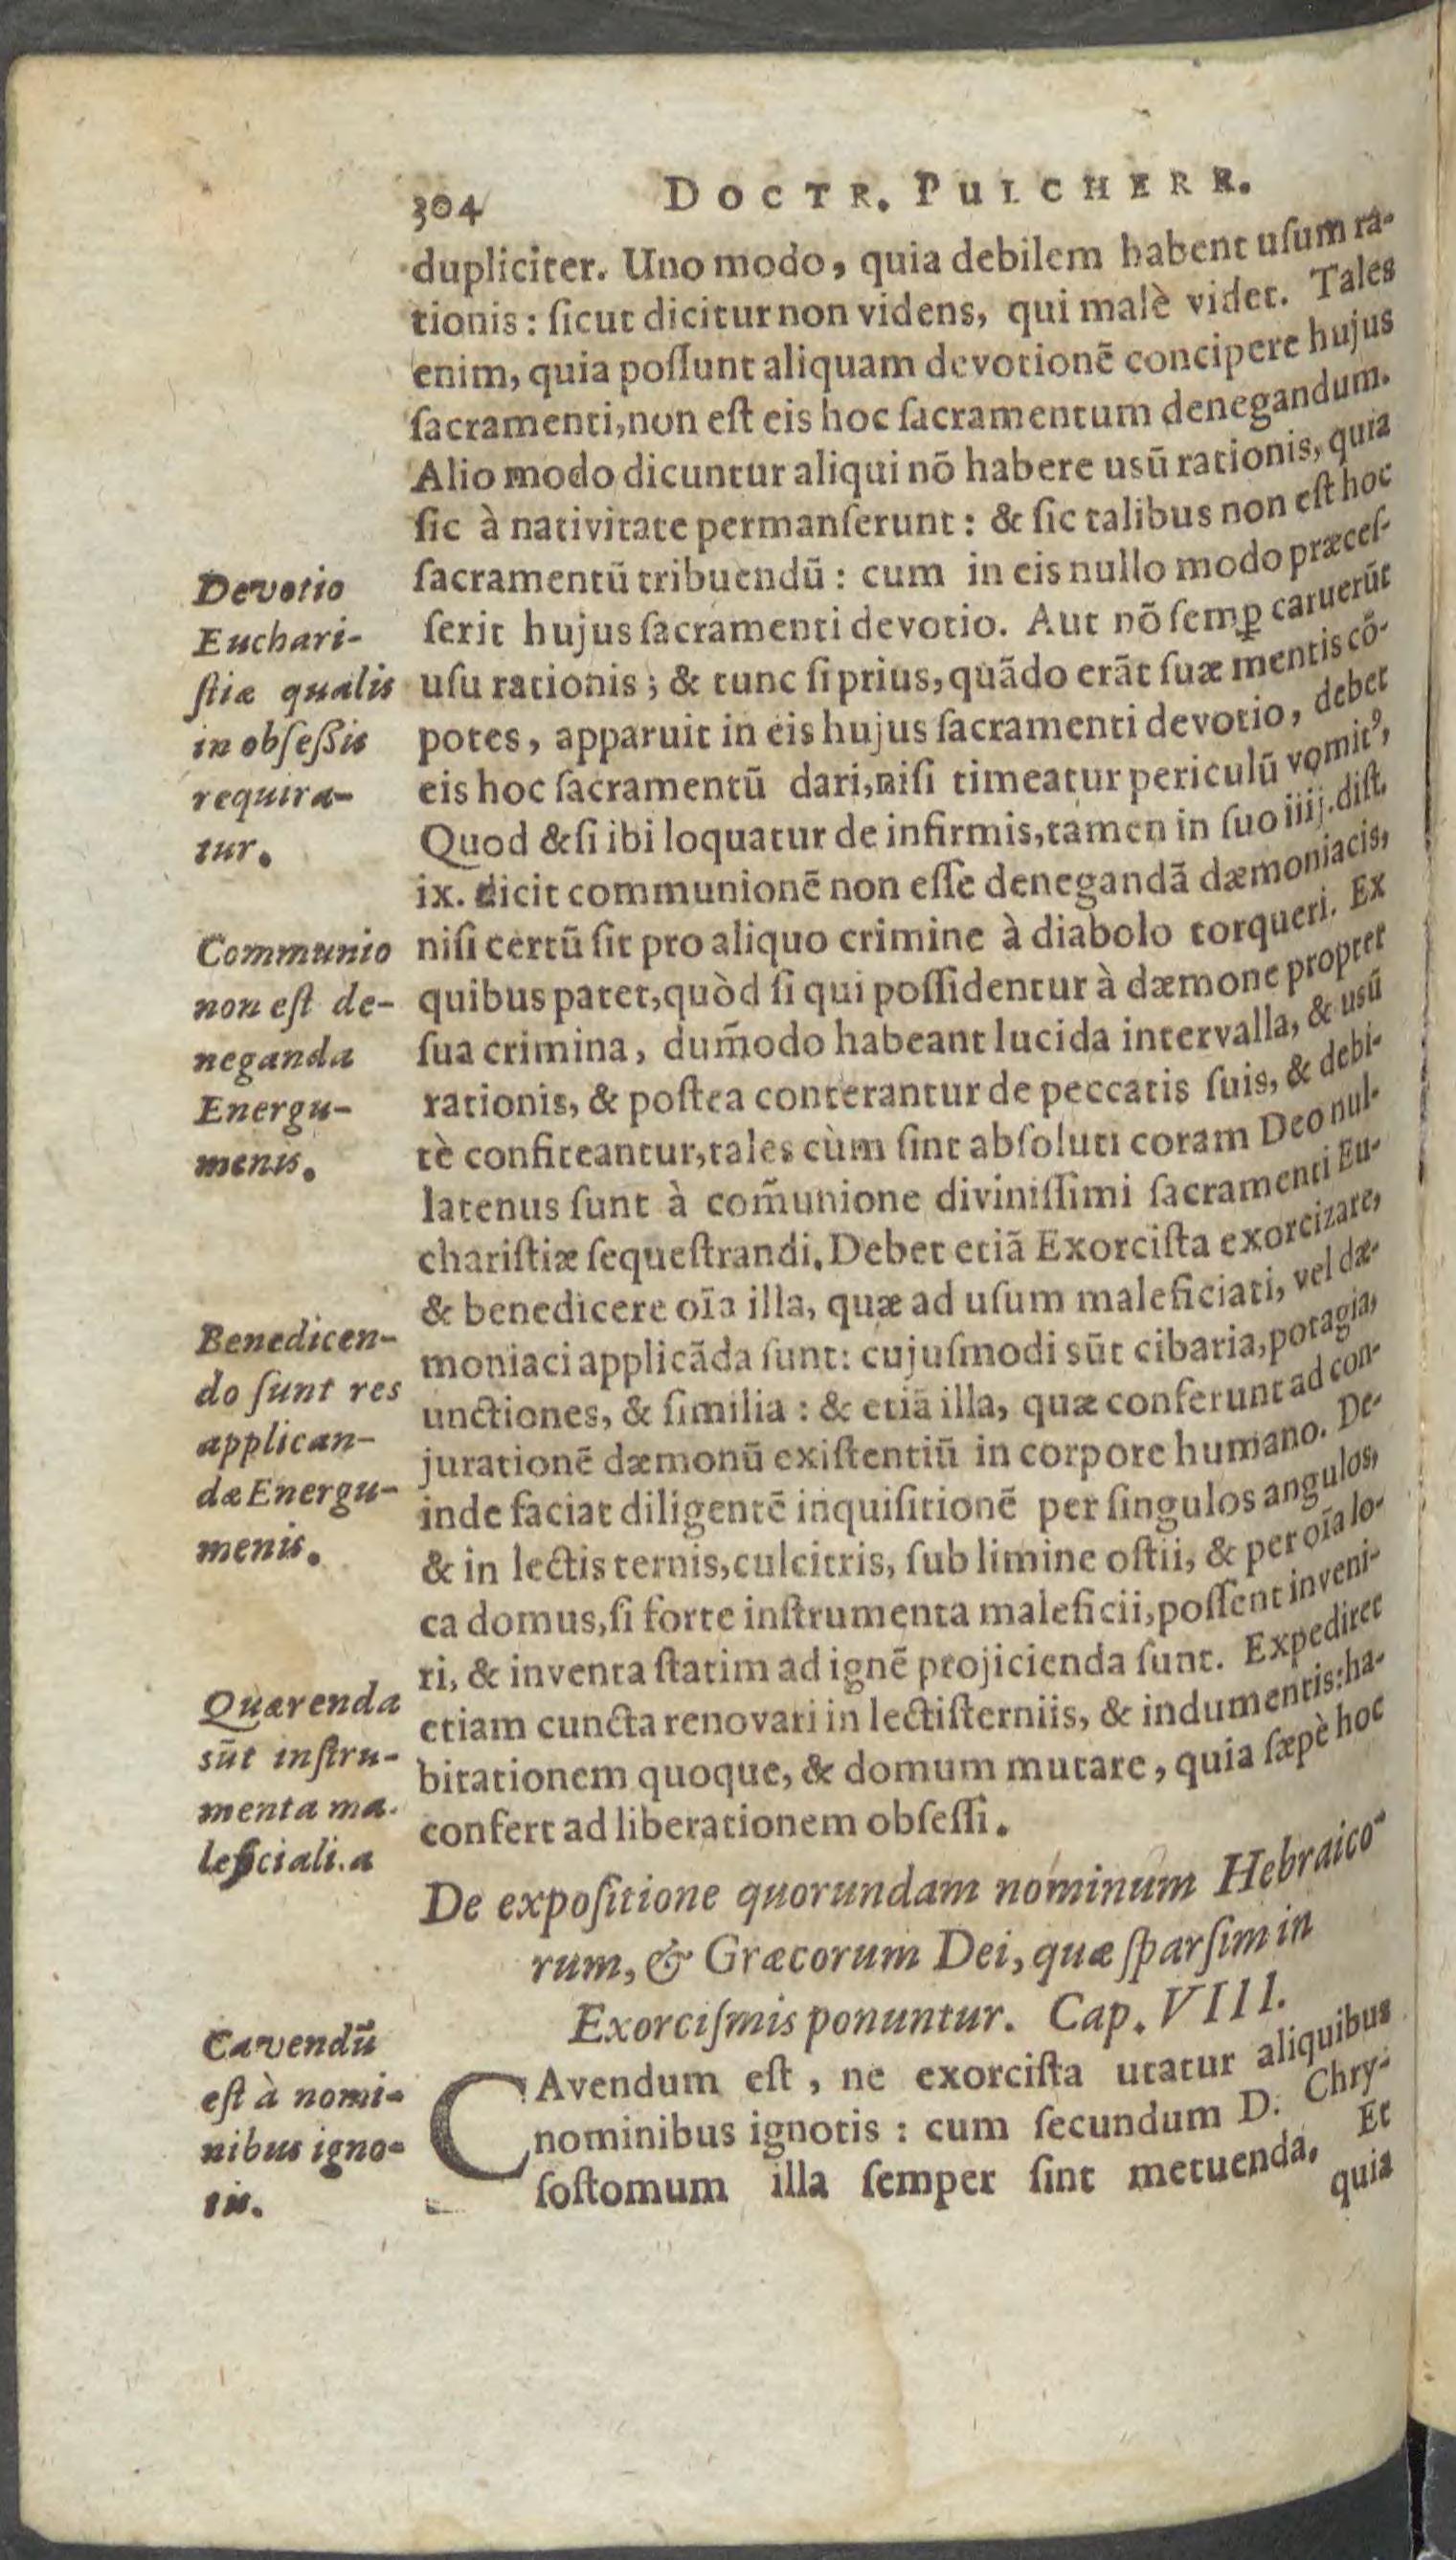 304 DOCTR. PULCHERR.
dupliciter. Uno modo, quia debilem habent uſum ra-
tionis : ſicut dicitur non videns, qui malè videt. Tales
enim, quia poſſunt aliquam devotionẽ concipere hujus
ſacramenti, non eſt eis hoc ſacramentum denegandum.
Alio modo dicuntur aliqui nõ habere usũ rationis, quia
ſic à nativitate permanſerunt : & ſic talibus non eſt hoc
ſacramentũ tribuendũ : cum in eis nullo modo præceſ-
ſerit hujus ſacramenti devotio. Aut nõ ſemꝑ caruerũt
uſu rationis ; & tunc ſi prius, quãdo erãt ſuæ mentis cõ-
potes, apparuit in eis hujus ſacramenti devotio, debet
eis hoc ſacramentũ dari, niſi timeatur periculũ vomitꝰ,
Quod & ſi ibi loquatur de infirmis, tamen in ſuo iiij. diſt.
ix. dicit communionẽ non eſſe denegandã dæmoniacis,
niſi certũ ſit pro aliquo crimine à diabolo torqueri. Ex
quibus patet, quòd ſi qui poſſidentur à dæmone propter
ſua crimina, dum̃odo habeant lucida intervalla, & usũ
rationis, & poſtea conterantur de peccatis ſuis, & debi-
tè confiteantur, tales cùm ſint abſoluti coram Deo nul-
latenus ſunt à com̃unione diviniſſimi ſacramenti Eu-
chariſtiæ ſequeſtrandi. Debet etiã Exorciſta exorcizare,
& benedicere oĩa illa, quæ ad uſum maleficiati, vel dæ-
moniaci applicãda ſunt: cujuſmodi sũt cibaria, potagia,
unctiones, & ſimilia : & etiã illa, quæ conferunt ad con-
jurationẽ dæmonũ exiſtentiũ in corpore humano. De-
inde faciat diligentẽ inquiſitionẽ per ſingulos angulos,
& in lectis ternis, culcitris, ſub limine oſtii, & per oĩa lo-
ca domus, ſi forte inſtrumenta maleficii, poſſent inveni-
ri, & inventa ſtatim ad ignẽ projicienda ſunt. Expediret
etiam cuncta renovari in lectiſterniis, & indumentis: ha-
bitationem quoque, & domum mutare, quia ſæpè hoc
confert ad liberationem obſeſſi.
De expoſitione quorundam nominum Hebraico-
rum, & Græcorum Dei, quæ ſparſim in
Exorciſmis ponuntur. Cap. VIII.
CAvendum eſt, ne exorciſta utatur aliquibus
nominibus ignotis : cum ſecundum D. Chry-
ſoſtomum illa ſemper ſint metuenda. Et
quia
Devotio
Euchari-
ſtiæ qualis
in obſeßis
requira-
tur.
Communio
non eſt de-
neganda
Energu-
menis.
Benedicen-
do ſunt res
applican-
dæ Energu-
menis.
Quærenda
sũt inſtru-
menta ma-
leficiali.a
Cavendũ
eſt à nomi-
nibus igno-
tis.